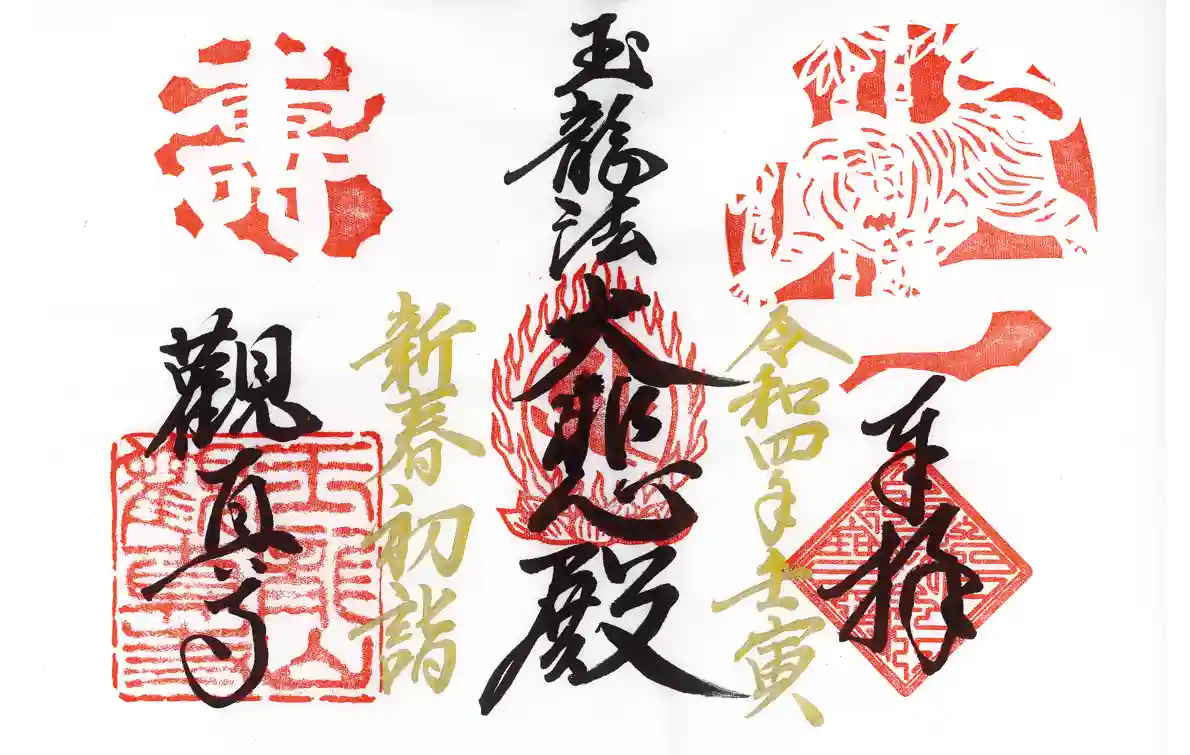 奉拝
令和四年壬寅
玉龍法
大悲殿
新春初詣
壽
觀直寺